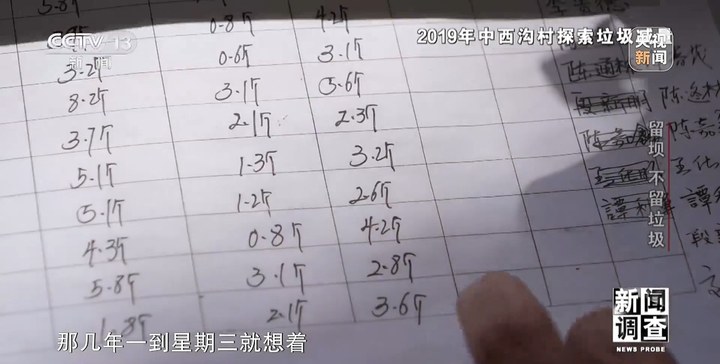 CCTV-13
新闻
2019年中西沟村探索垃圾减量
央视
新闻
0.8斤 4.2斤
3.2斤 0.6斤 3.1斤
8.2斤 3.1斤 5.6斤
3.7斤 2.1斤 2.3斤
5.1斤 1.3斤 3.2斤
5.1斤 1.2斤 2.6斤
4.3斤 0.8斤 4.2斤
5.8斤 3.1斤 2.8斤
1.8斤 2.1斤 3.6斤
留坝 不留垃圾
新闻
调查
NEWS PROBE
那几年一到星期三就想着